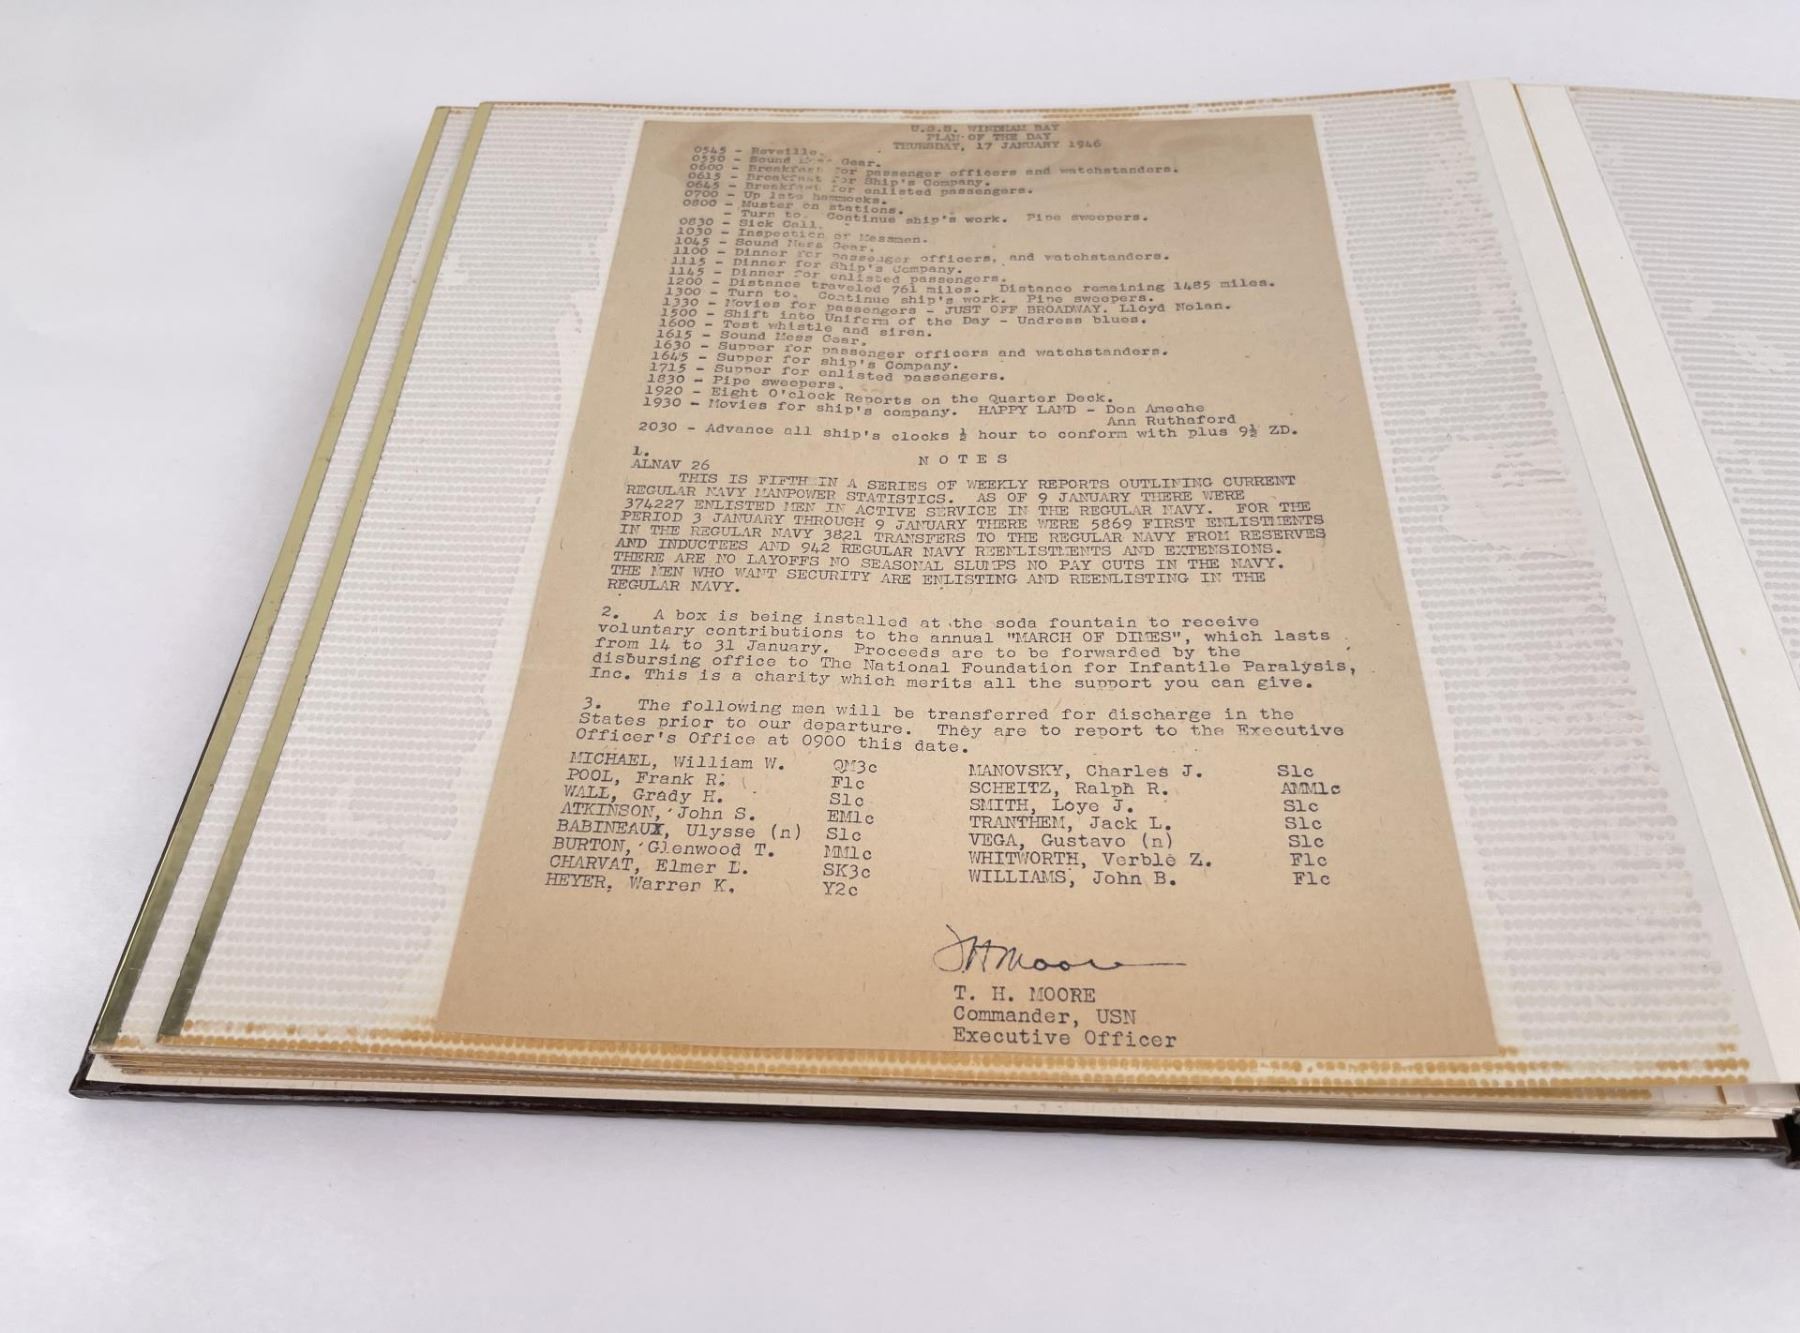 U.S.S. WINDHAM BAY
PLAN OF THE DAY
THURSDAY, 17 JANUARY 1946
0545 - Reveille.
0550 - Sound Mess Gear.
0600 - Breakfast for passenger officers and watchstanders.
0615 - Breakfast for Ship's Company.
0645 - Breakfast for enlisted passengers.
0700 - Up late hammocks.
0800 - Muster on stations.
- Turn to. Continue ship's work. Pipe sweepers.
0830 - Sick Call.
1030 - Inspection of Messmen.
1045 - Sound Mess Gear.
1100 - Dinner for passenger officers, and watchstanders.
1115 - Dinner for Ship's Company.
1145 - Dinner for enlisted passengers.
1200 - Distance traveled 761 miles. Distance remaining 1485 miles.
1300 - Turn to. Continue ship's work. Pipe sweepers.
1330 - Movies for passengers - JUST OFF BROADWAY. Lloyd Nolan.
1500 - Shift into Uniform of the Day - Undress blues.
1600 - Test whistle and siren.
1615 - Sound Mess Gear.
1630 - Supper for passenger officers and watchstanders.
1645 - Supper for ship's Company.
1715 - Supper for enlisted passengers.
1830 - Pipe sweepers.
1920 - Eight O'clock Reports on the Quarter Deck.
1930 - Movies for ship's company. HAPPY LAND - Don Ameche
Ann Ruthaford
2030 - Advance all ship's clocks ½ hour to conform with plus 9½ ZD.
N O T E S
1.
ALNAV 26
THIS IS FIFTH IN A SERIES OF WEEKLY REPORTS OUTLINING CURRENT
REGULAR NAVY MANPOWER STATISTICS. AS OF 9 JANUARY THERE WERE
374227 ENLISTED MEN IN ACTIVE SERVICE IN THE REGULAR NAVY. FOR THE
PERIOD 3 JANUARY THROUGH 9 JANUARY THERE WERE 5869 FIRST ENLISTMENTS
IN THE REGULAR NAVY 3821 TRANSFERS TO THE REGULAR NAVY FROM RESERVES
AND INDUCTEES AND 942 REGULAR NAVY REENLISTMENTS AND EXTENSIONS.
THERE ARE NO LAYOFFS NO SEASONAL SLUMPS NO PAY CUTS IN THE NAVY.
THE MEN WHO WANT SECURITY ARE ENLISTING AND REENLISTING IN THE
REGULAR NAVY.
2. A box is being installed at the soda fountain to receive
voluntary contributions to the annual "MARCH OF DIMES", which lasts
from 14 to 31 January. Proceeds are to be forwarded by the
disbursing office to The National Foundation for Infantile Paralysis,
Inc. This is a charity which merits all the support you can give.
3. The following men will be transferred for discharge in the
States prior to our departure. They are to report to the Executive
Officer's Office at 0900 this date.
MICHAEL, William W. QM3c MANOVSKY, Charles J. S1c
POOL, Frank R. F1c SCHEITZ, Ralph R. AMM1c
WALL, Grady H. S1c SMITH, Loye J. S1c
ATKINSON, John S. EM1c TRANTHEM, Jack L. S1c
BABINEAUX, Ulysse (n) S1c VEGA, Gustavo (n) S1c
BURTON, Glenwood T. MM1c WHITWORTH, Verble Z. F1c
CHARVAT, Elmer L. SK3c WILLIAMS, John B. F1c
HEYER, Warren K. Y2c
T H Moore
T. H. MOORE
Commander, USN
Executive Officer